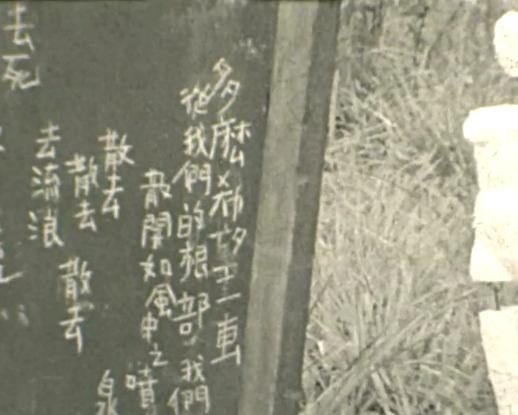 多麼希望王車
從我們的根部 我們
散開如風中之噴
泉
散去
散去
散去
去流浪
去死